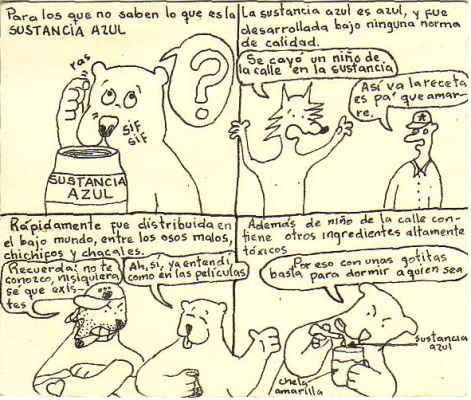 Para los que no saben lo que es la
SUSTANCIA AZUL
ras
?
SIF
SIF
SUSTANCIA
AZUL
La sustancia azul es azul, y fue
desarrollada bajo ninguna norma
de calidad.
Se cayó un niño de
la calle en la sustancia
Así va la receta
es pa' que amar-
re.
Rápidamente fue distribuida en
el bajo mundo, entre los osos malos,
chichipos y chacales.
Recuerda: no te
conozco, nisiquiera
se que exis-
tes
Ah, si, ya entendí,
como en las películas
Además de niño de la calle con-
tiene otros ingredientes altamente
tóxicos
Por eso con unas gotitas
basta para dormir a quien sea
sustancia
azul
chela
amarilla